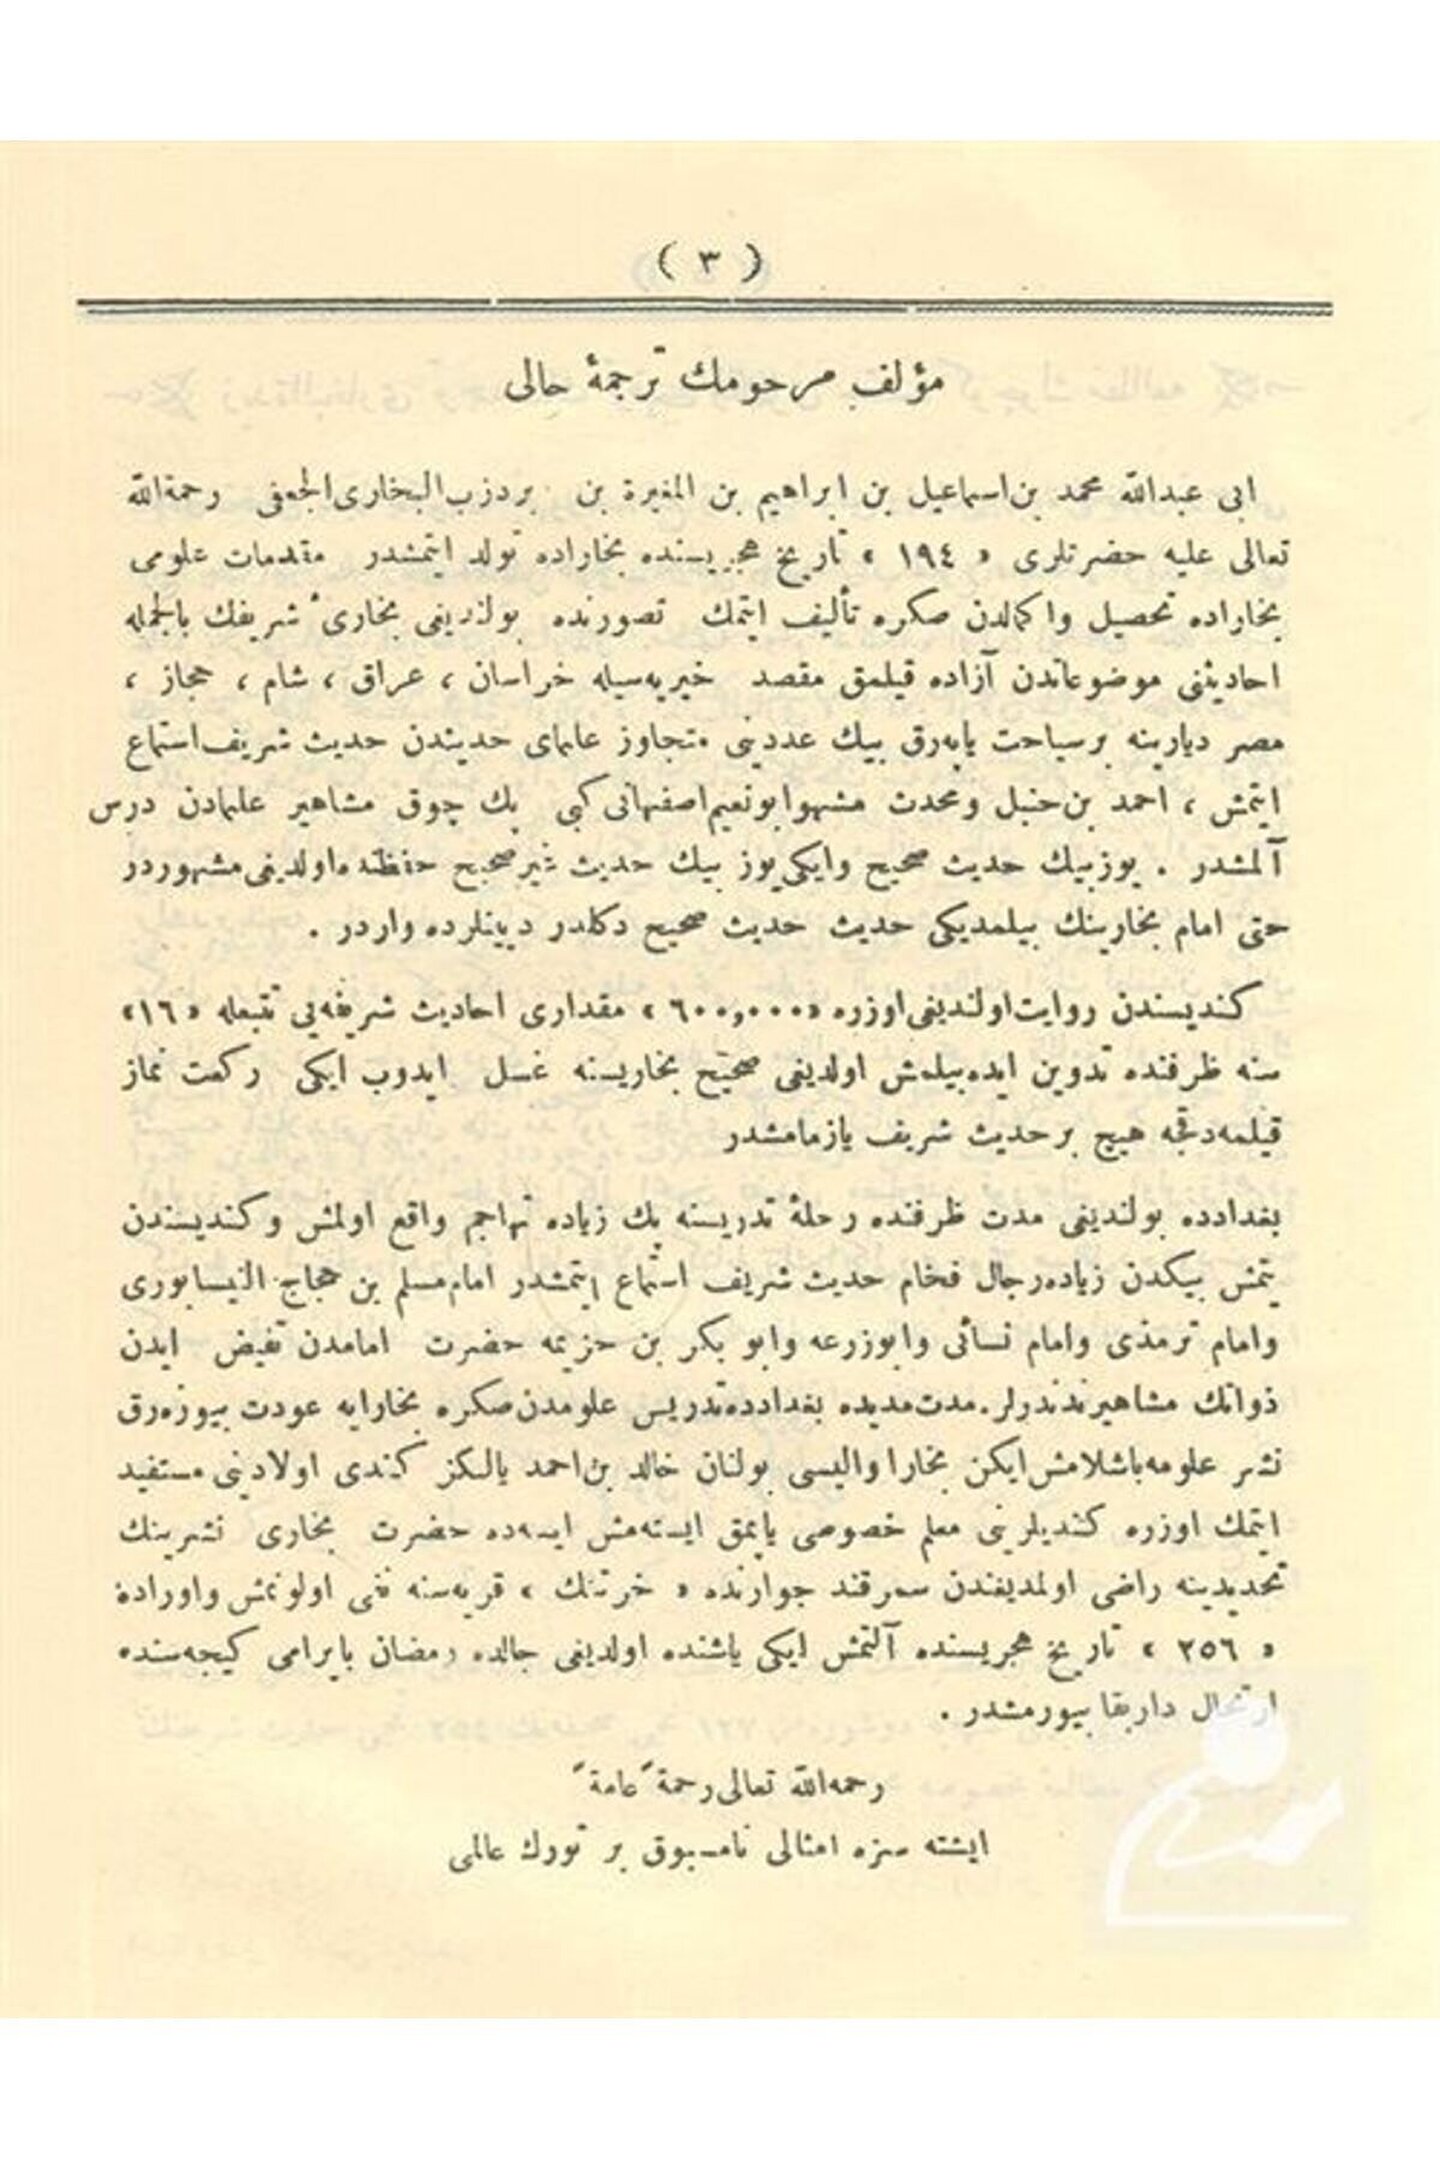 ( ٣ )
مؤلف مرحومك ترجمهٔ حالى
ابى عبدالله محمد بن اسماعيل بن ابراهيم بن المغيرة بن بردزب البخارى الجعفى رحمة الله
تعالى عليه حضرتلرى « ١٩٤ » تاريخ هجريسنده بخاراده تولد ايتمشدر مقدمات علومى
بخاراده تحصيل واكمالدن صكره تأليف ايتمك تصورنده بولنديغى بخارئ شريفك بالجمله
احاديثنى موضوعاتدن آزاده قيلمق مقصد خيريه سيله خراسان ، عراق ، شام ، حجاز ،
مصر ديارينه برسياحت ياپه رق بيك عددينى متجاوز علماى حديثدن حديث شريف استماع
ايتمش ، احمد بن حنبل ومحدث مشهو ابونعيم اصفهانى كبى پك چوق مشاهير علمادن درس
آلمشدر . يوزبيك حديث صحيح وايكى يوز بيك حديث غير صحيح حفظنده اولديغى مشهوردر
حتى امام بخارينك بيلمديكى حديث حديث صحيح دكلدر ديينلرده واردر .
كنديسندن روايت اولنديغى اوزره «٦٠٠,٠٠٠» مقدارى احاديث شريفه يى تتبعله «١٦»
سنه ظرفنده تدوين ايده بيلمش اولديغى صحيح بخاريسنه غسل ايدوب ايكى ركعت نماز
قيلمه دقجه هيچ برحديث شريف يازمامشدر
بغدادده بولنديغى مدت ظرفنده رحلهٔ تدريسنه پك زياده تهاجم واقع اولمش وكنديسندن
يتمش بيكدن زياده رجال فخام حديث شريف استماع ايتمشدر امام مسلم بن حجاج النيسابورى
وامام ترمذى وامام نسائى وابوزرعه وابو بكر بن حزيمه حضرت امامدن تفيض ايدن
ذواتك مشاهيرندندرلر. مدت مديده بغدادده تدريس علومدن صكره بخارايه عودت بيوره رق
نشر علومه باشلامش ايكن بخارا واليسى بولنان خالد بن احمد يالكز كندى اولادينى مستفيد
ايتمك اوزره كنديلرينى معلم خصوصى ياپمق ايسته مش ايسه ده حضرت بخارى نشرينك
تحديدينه راضى اولمديغندن سمرقند جوارنده « خرتنك » قريه سنه نفى اولونمش واوراده
« ٢٥٦ » تاريخ هجريسنده آلتمش ايكى ياشنده اولديغى حالده رمضان بايرامى كيجه سنده
ارتحال داربقا بيورمشدر .
رحمه الله تعالى رحمةً عامةً
ايشته سزه امثالى نامسبوق بر تورك عالمى